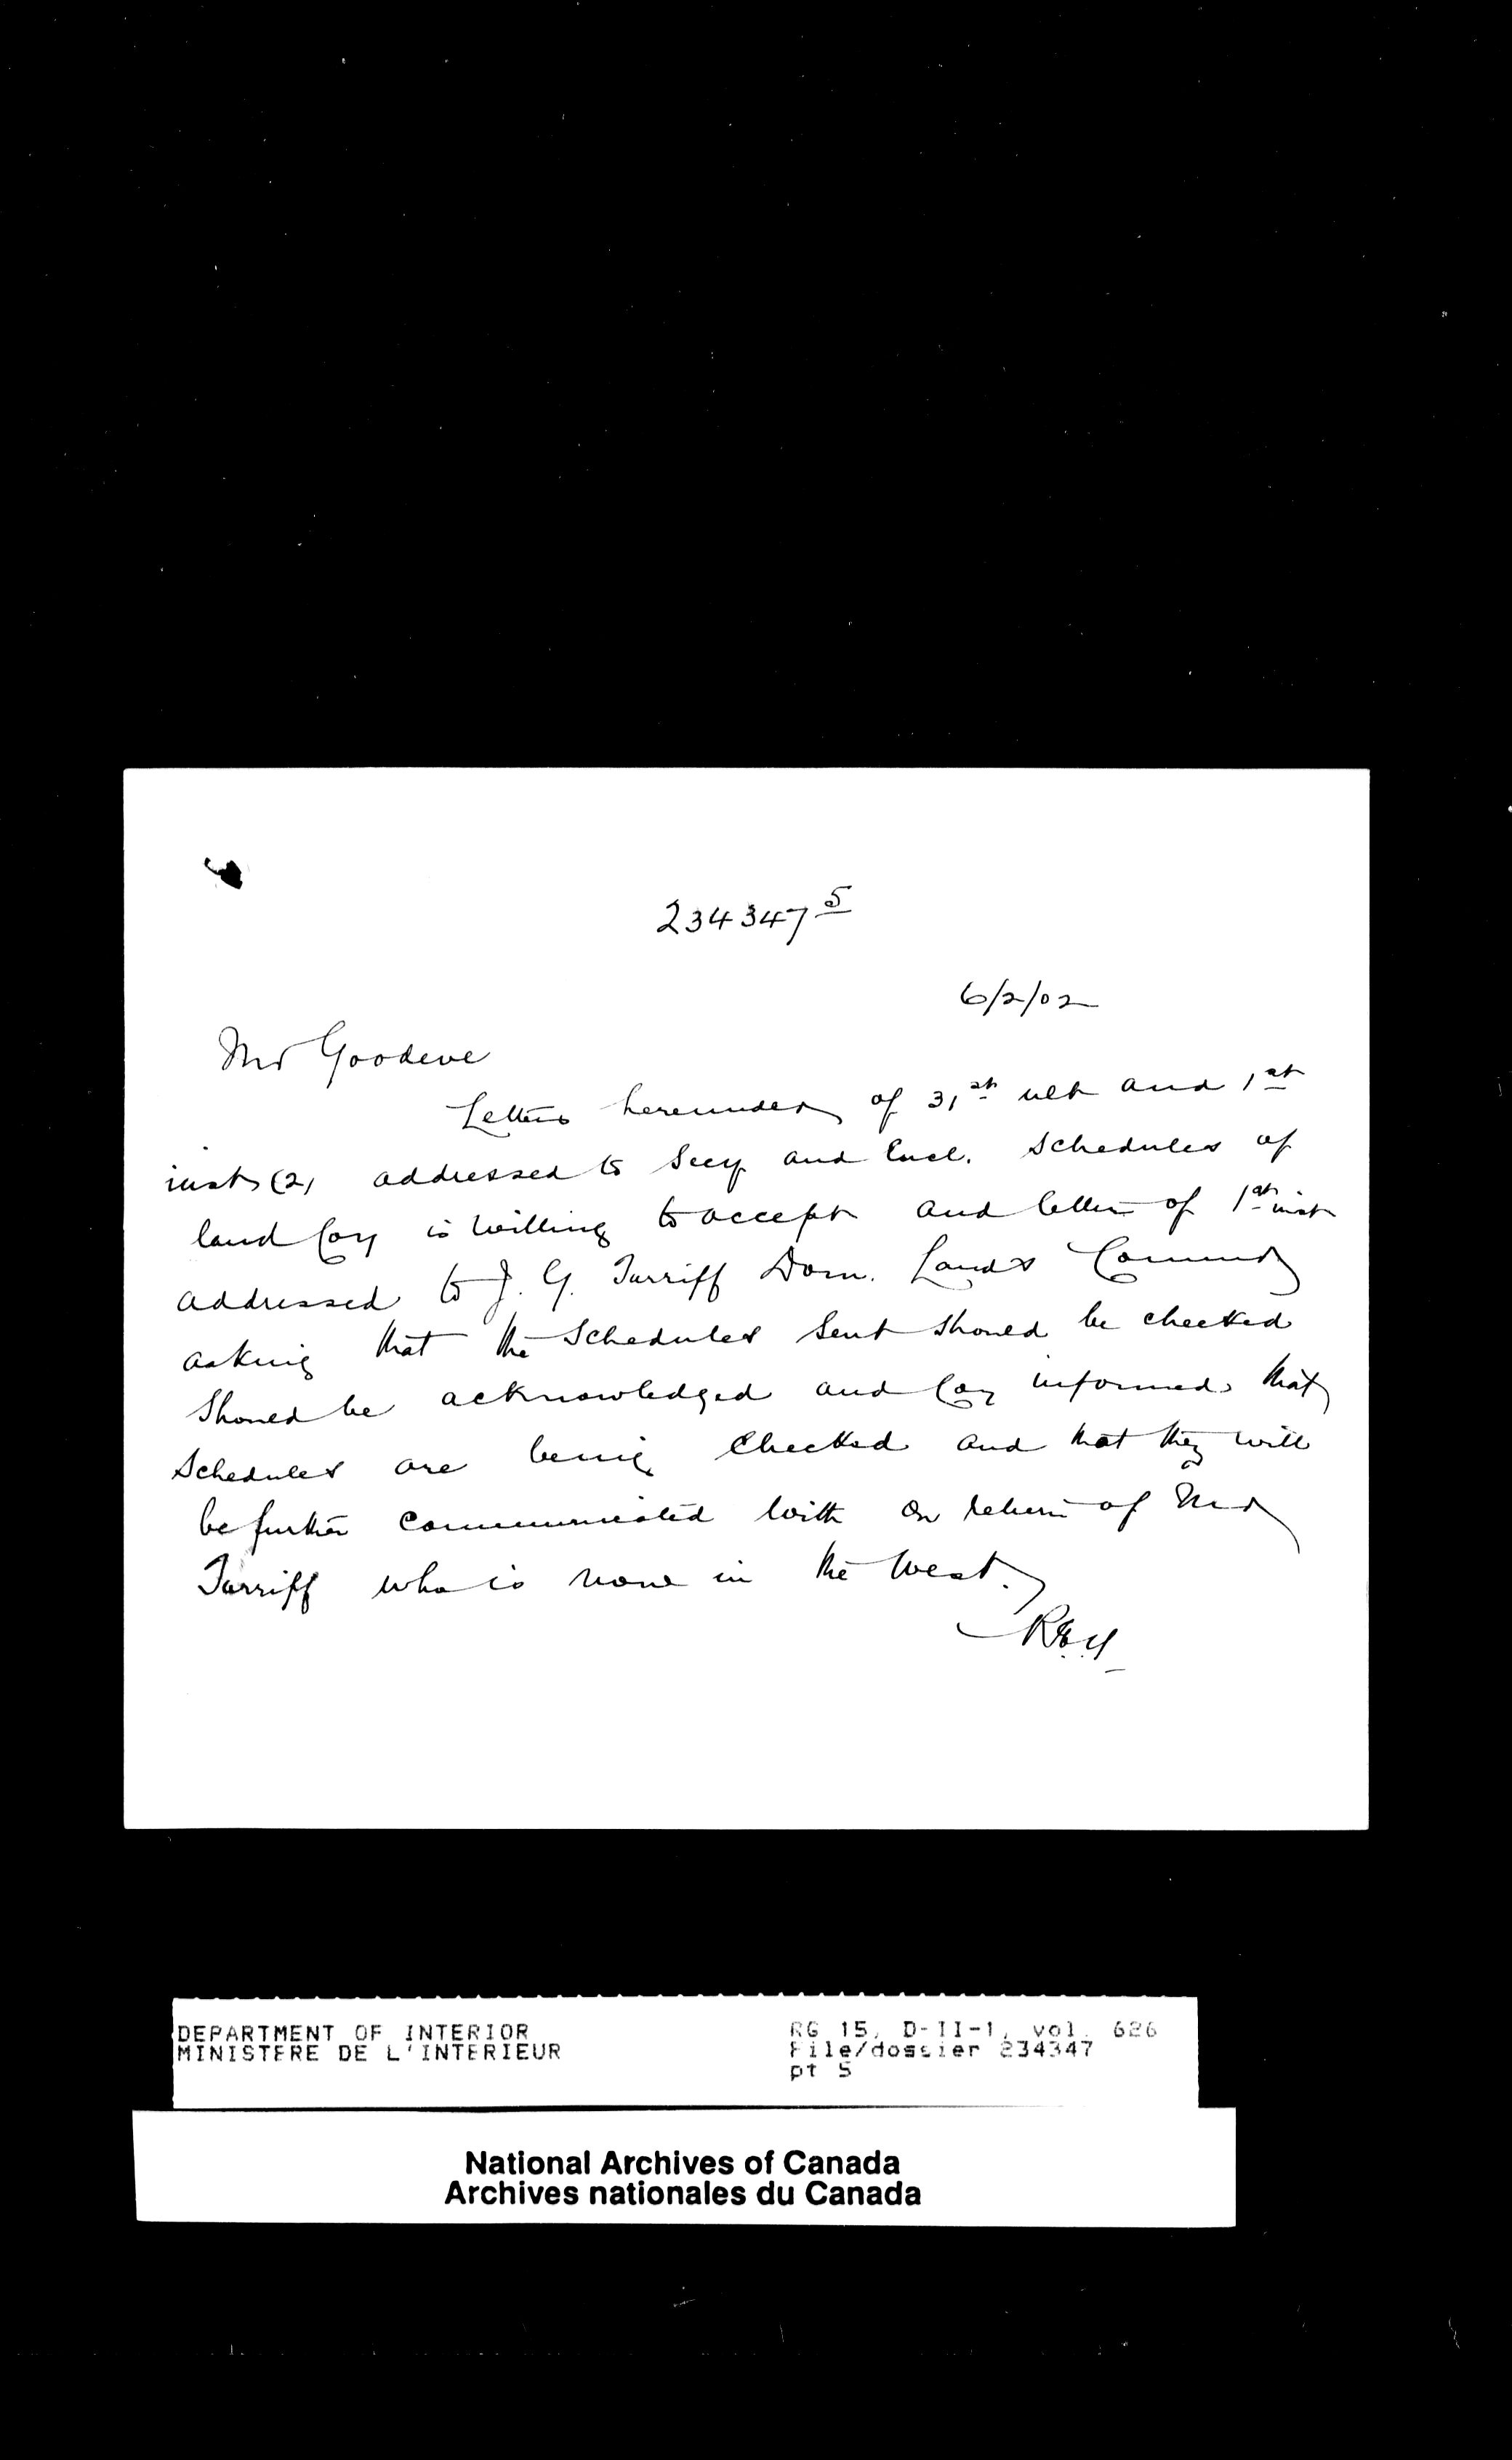 234347 5
6/2/02
Mr Goodeve
Letters hereunder of 31st ult and 1st
inst (2) addressed to Secy and Encl. Schedules of
land Coy is willing to accept and letter of 1st inst
addressed to J. G. Turriff Dom. Lands Commr
asking that the Schedules sent should be checked
should be acknowledged and Coy informed that
Schedules are being checked and that they will
be further communicated with on return of Mr
Turriff who is now in the West.
DEPARTMENT OF INTERIOR
MINISTERE DE L'INTERIEUR
RG 15, D-II-1, vol. 626
File/dossier 234347
pt 5
National Archives of Canada
Archives nationales du Canada